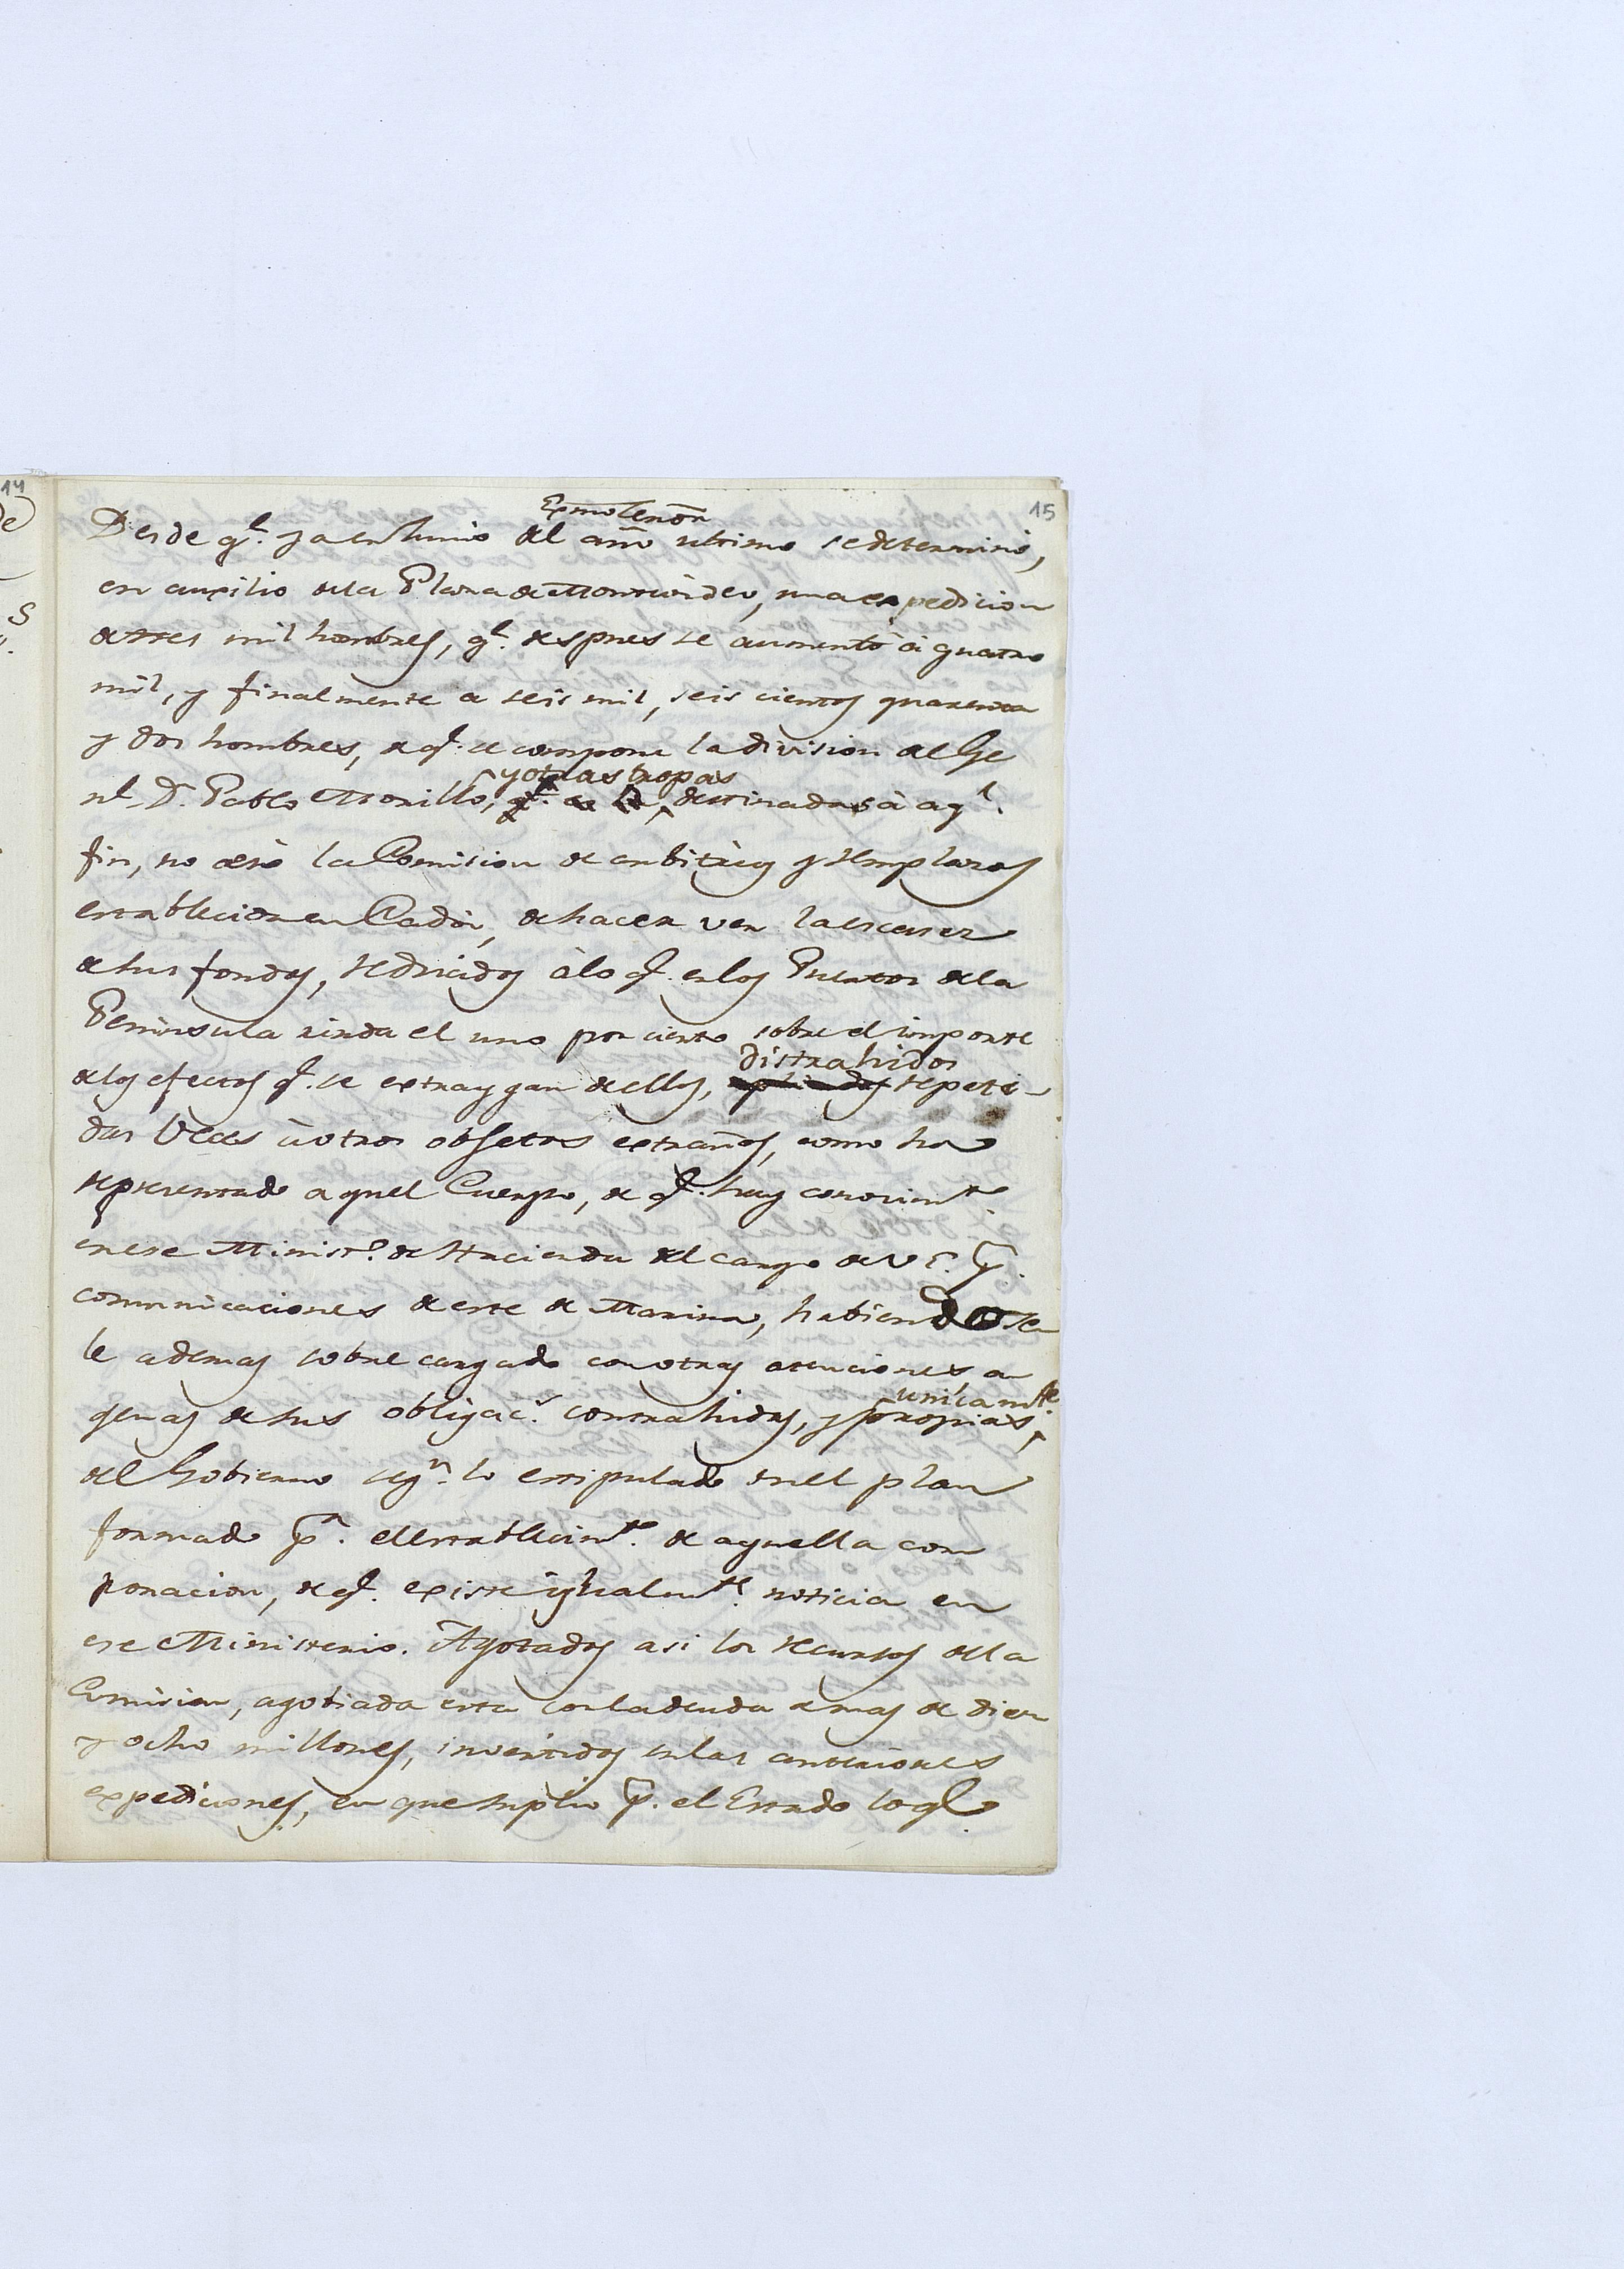 14
de
S
15
Exmo Señor
Desde qe. ya en Junio del año ultimo se determinó,
en auxilio dela Plaza de Montevideo, una expedicion
de tres mil hombres, qe. despues se aumentò à quatro
mil, y finalmente a seis mil, seis cientos quarenta
y dos hombres, de q. se compone la division del Ge
nl. Dn. Pablo Morillo, y otras tropas destinadas à aql.
fin, no cesò la Comision de arbitrios y reemplazos
establecida en Cadiz, de hacer ver la escasez
de sus fondos, reducidos à lo q. en los Puertos dela
Peninsula rinda el uno por ciento sobre el importe
delos efectos q. se extraygan dellos, distrahidos repeti-
das veces à otros objetos extraños, como ha
representado aquel Cuerpo, de q. hay conocimto.
en ese Ministo. de Hacienda del cargo de V. E. pr.
comunicaciones de este de Marina, habiendose
le ademas sobrecargado con otras atenciones, a
genas de sus obligacs. contrahidas, y propias unicamte.
del Gobierno segn. lo estipulado en el plan
formado pa. el establecimto. de aquella cor
poracion, de q. existe igualmte. noticia en
ese Ministerio. Agotados asi los recursos dela
Comision, agobiada esta con la deuda de mas de diez
y ocho millones, invertidos en las anteriores
expediciones, en que suplio pr. el Estado lo qe.